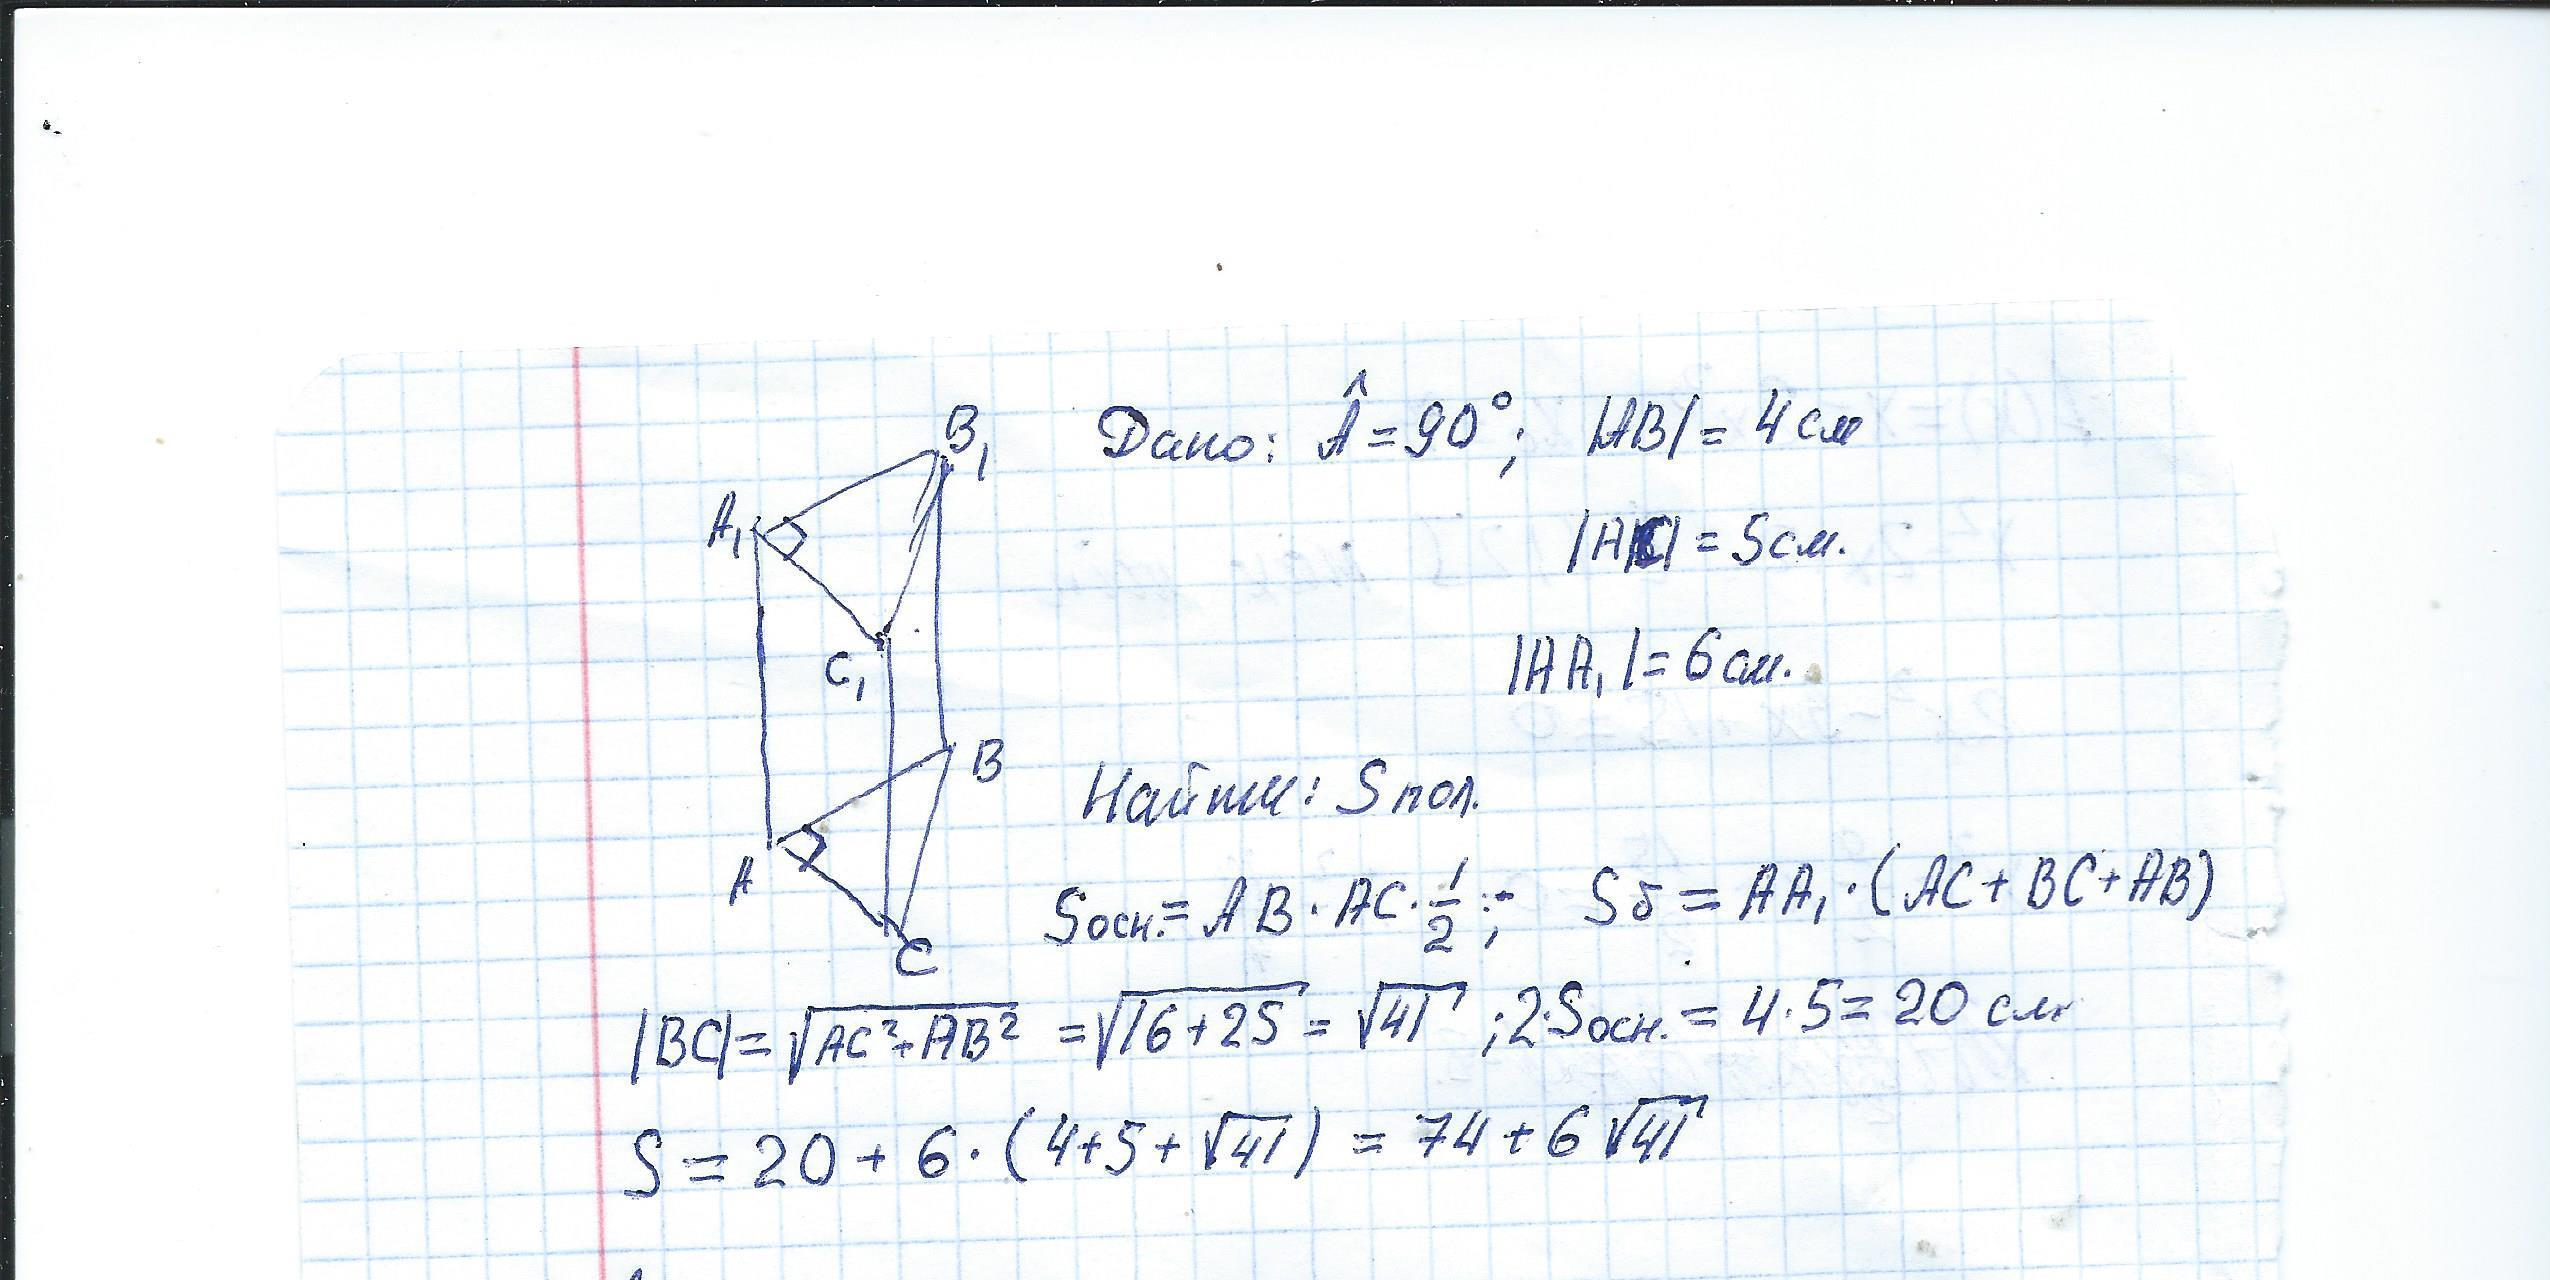 B₁
Дано: Â = 90°; |AB| = 4 см
A₁
|AC| = 5 см.
C₁
|AA₁| = 6 см.
B
Найти: Sпол.
A
Sосн. = AB · AC · 1/2 ; Sб = AA₁ · (AC + BC + AB)
C
|BC| = √(AC² + AB²) = √(16 + 25) = √41 ; 2·Sосн. = 4·5 = 20 см
S = 20 + 6 · (4 + 5 + √41) = 74 + 6√41